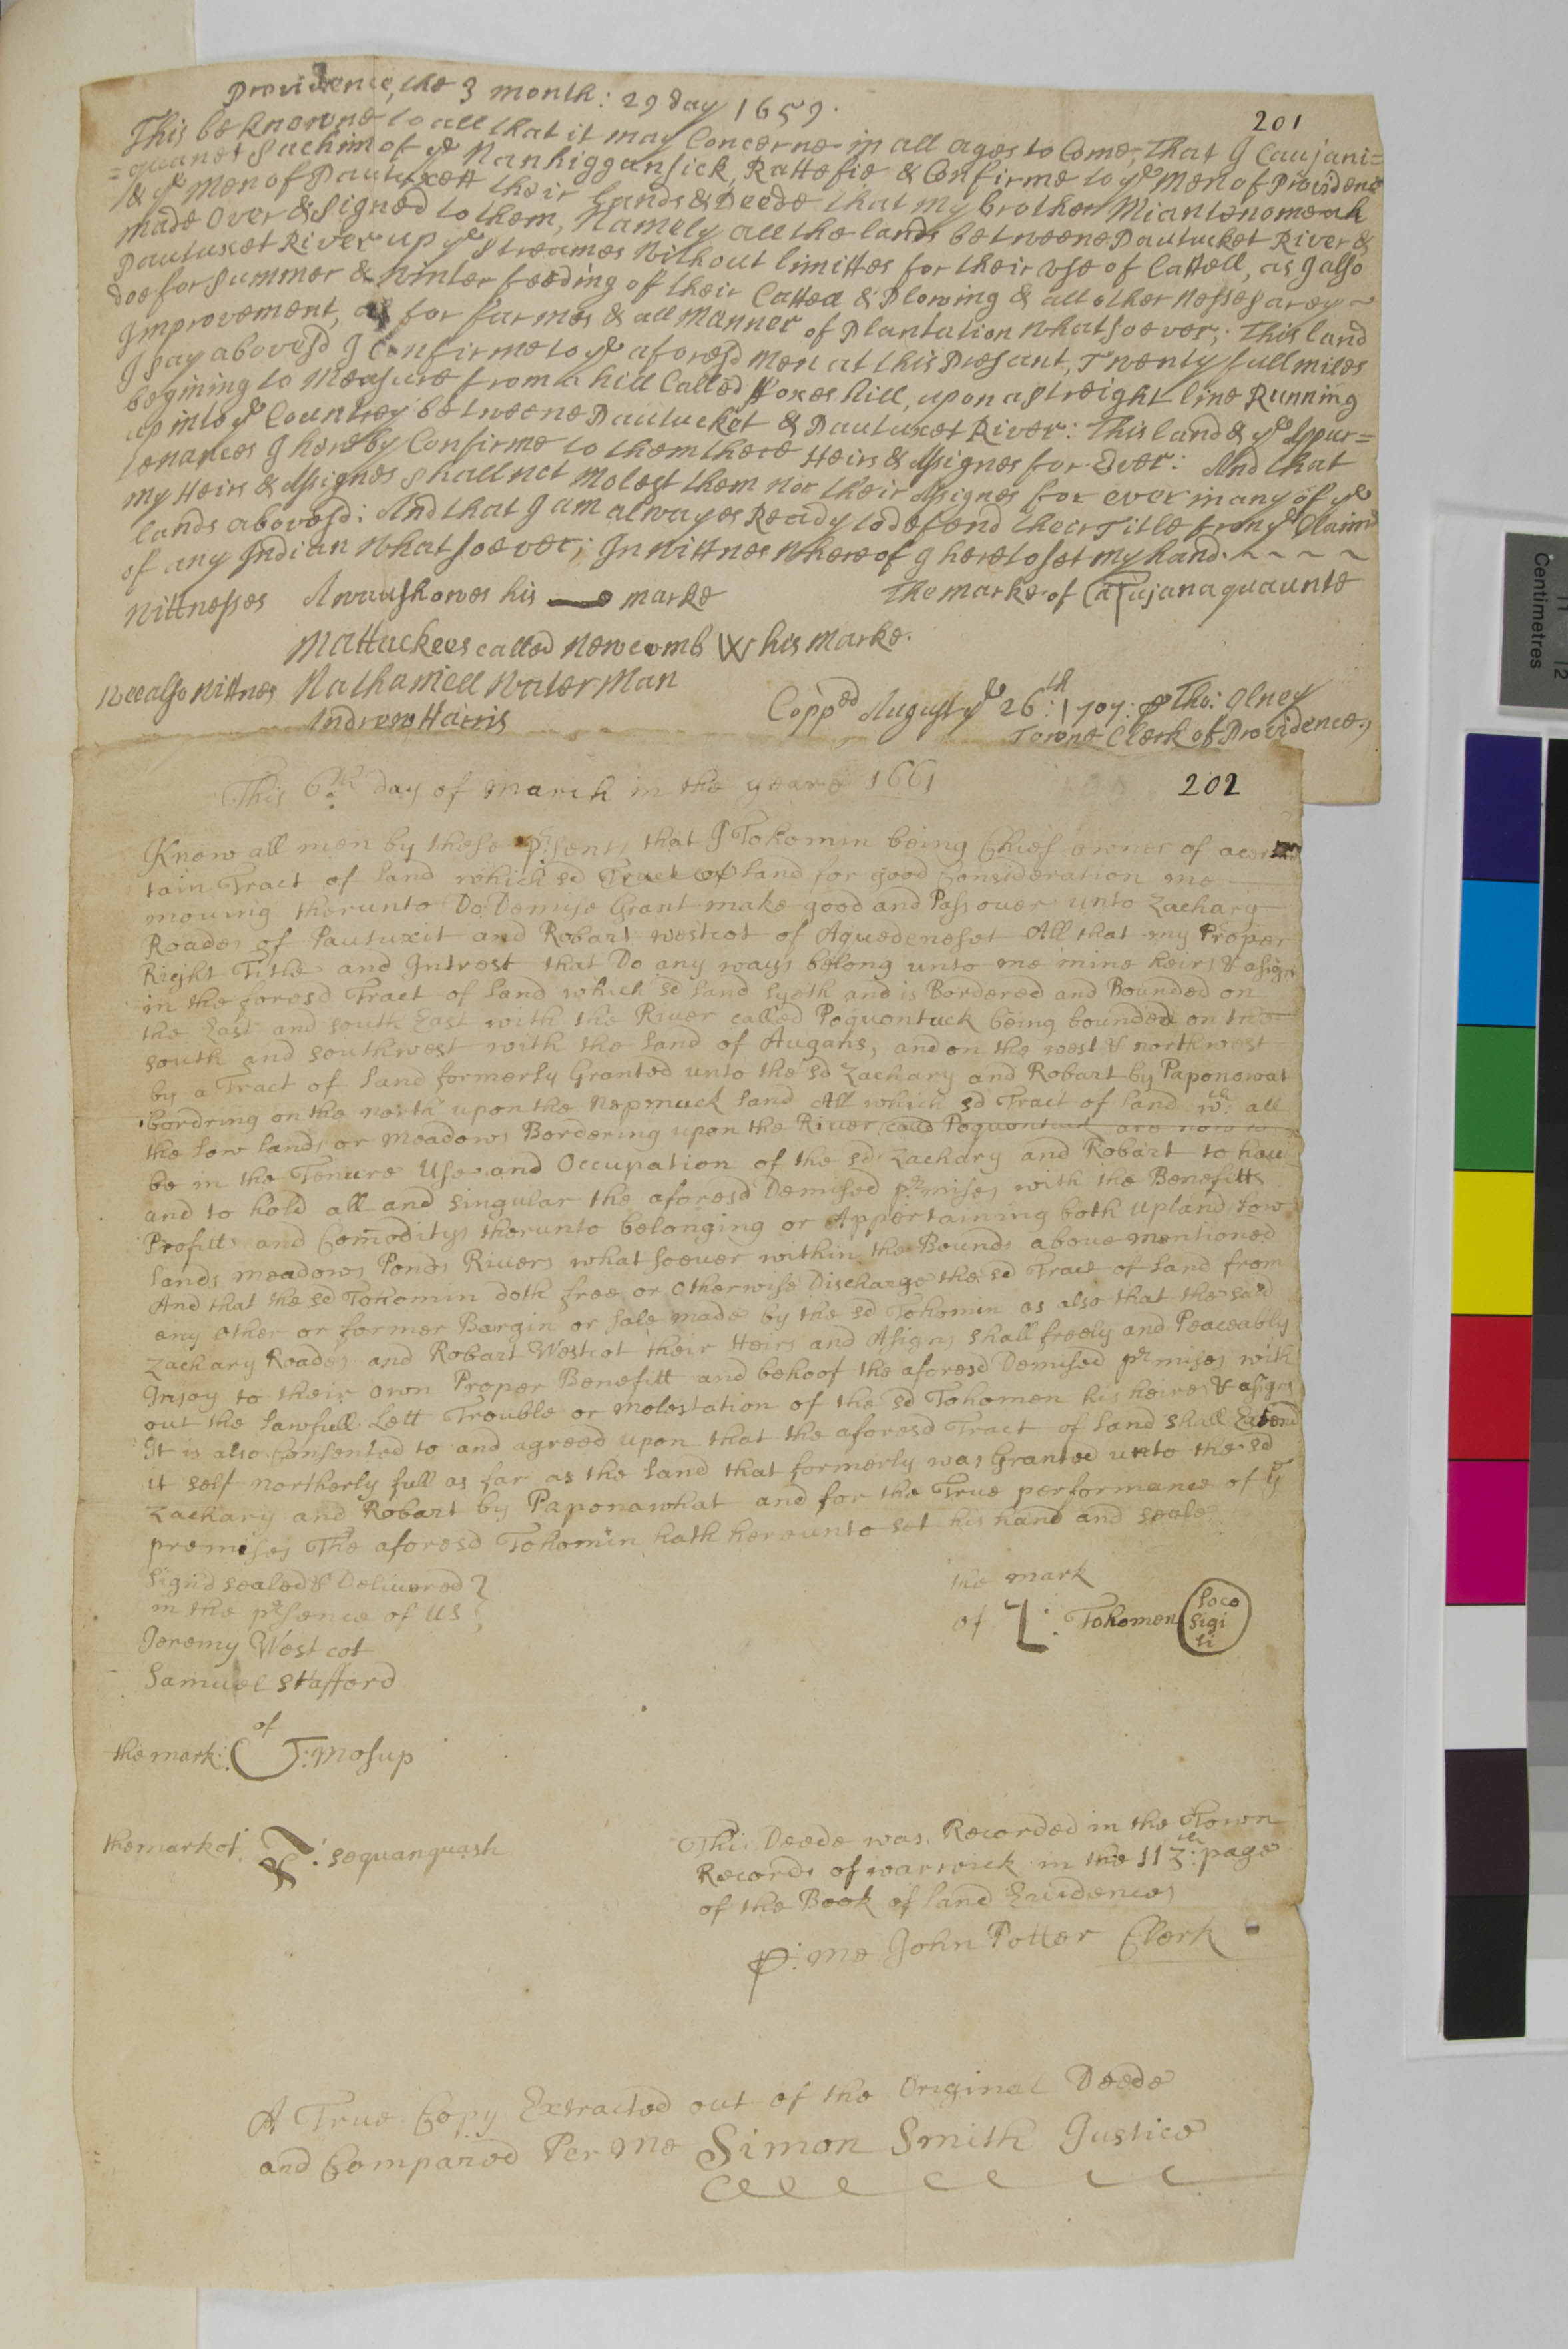 Providence, the 3 month: 29 day 1659.
201
This be knowne to all that it may Concerne in all ages to Come, That I Caujani=
=quanet Sachim of ye Nanhiggansick, Rattefie & Confirme to ye Men of Providence
& ye Men of Pautuxett their Lands & Deede that my brother Miantenomeah
made Over & Signed to them, Namely all the lands betweene Pautucket River &
Pautuxet River up ye Streames Without limittes for their Vse of Cattell, as I also
doe for Summer & Winter feeding of their Cattell & Plowing & all other Nessesarey ~
Improvement, as for farmes & all Manner of Plantation Whatsoever; This land
I say abovesd I Confirme to ye aforesd Men at this Presant, Twenty full miles
begining to Measure from a hill Called Foxes hill, upon a streight line Running
up into ye Countrey betweene Pautucket & Pautuxet River: This land & ye Apur=
tenances I hereby Confirme to them there Heirs & Assignes for Ever: And that
my Heirs & Assignes shall not Molest them nor their Assignes for ever in any of ye
lands abovesd: And that I am alwayes Ready to defend their Title from ye Claime
of any Indian Whatsoever; In Wittnes Whereof I hereto set my hand. ~ ~ ~ ~
Wittnesses Awaushowes his marke The Marke of Caujanaquaunte
Mattuckees called Newcomb his Marke.
Wee also Wittnes Nathaniell Waterman
Andrew Harris
Copped August ye 26th: 1707: p Tho: Olney
Towne Clerk of Providence.,
This 6th day of March in the yeare 1661
202
Know all men by these prsents that I Tokomin being Chief owner of a cer
tain Tract of land which sd Tract of land for good Consideration me
mouing therunto Do Demise Grant make good and Pass ouer unto Zachary
Roades of Pautuxit and Robart Westcot of Aquedeneset All that my Proper
Riejht Title and Intrest that Do any ways belong unto me mine heirs & asigns
in the foresd Tract of land which sd land lyeth and is Bordered and Bounded on
the East and south East with the River called Poquontuck being bounded on the
south and southwest with the land of Augans, and on the west & northwest
by a Tract of land formerly Granted unto the sd Zachary and Robart by Paponowat
bordring on the north upon the Nepmuck land All which sd Tract of land wth: all
the low lands or meadows Bordering upon the River called Poquontuck are now
be in the Tenure Use and Occupation of the sd Zachary and Robart to haue
and to hold all and singular the aforesd Demised prmises with the Benefitts
Profitts and Comoditys therunto belonging or Appertaining both upland low
lands meadows Ponds Rivers what soeuer within the Bounds aboue mentioned
And that the sd Tokomin doth free or Otherwise Discharge the sd Tract of land from
any other or former Bargin or sale made by the sd Tokomin as also that the said
Zachary Roades and Robart Westcot their Heirs and Asigns shall freely and Peaceably
Injoy to their own Proper Benefitt and behoof the aforesd Demised prmises with
out the lawfull Lett Trouble or molestation of the sd Tokomen his heires & asigns
It is also Consented to and agreed upon that the aforesd Tract of land shall Extend
it self northerly full as far as the land that formerly was Granted unto the sd
Zachary and Robart by Paponawhat and for the True performance of ye
premises The aforesd Tokomin hath hereunto set his hand and seale
Signd sealed & Delivered
in the prsence of us
the mark
of Tokomen
Loco
Sigi
li
Jeremy Westcot
Samuel Stafford
the mark: of : Mosup
the mark of : sequanquash
This Deede was Recorded in the Town
Records of warwick in the 113th: page
of the Book of land Euidences
p: me John Potter Clerk
A True Copy Extracted out of the Original Deede
and Compared Per me Simon Smith Justice
Centimetres
11
12